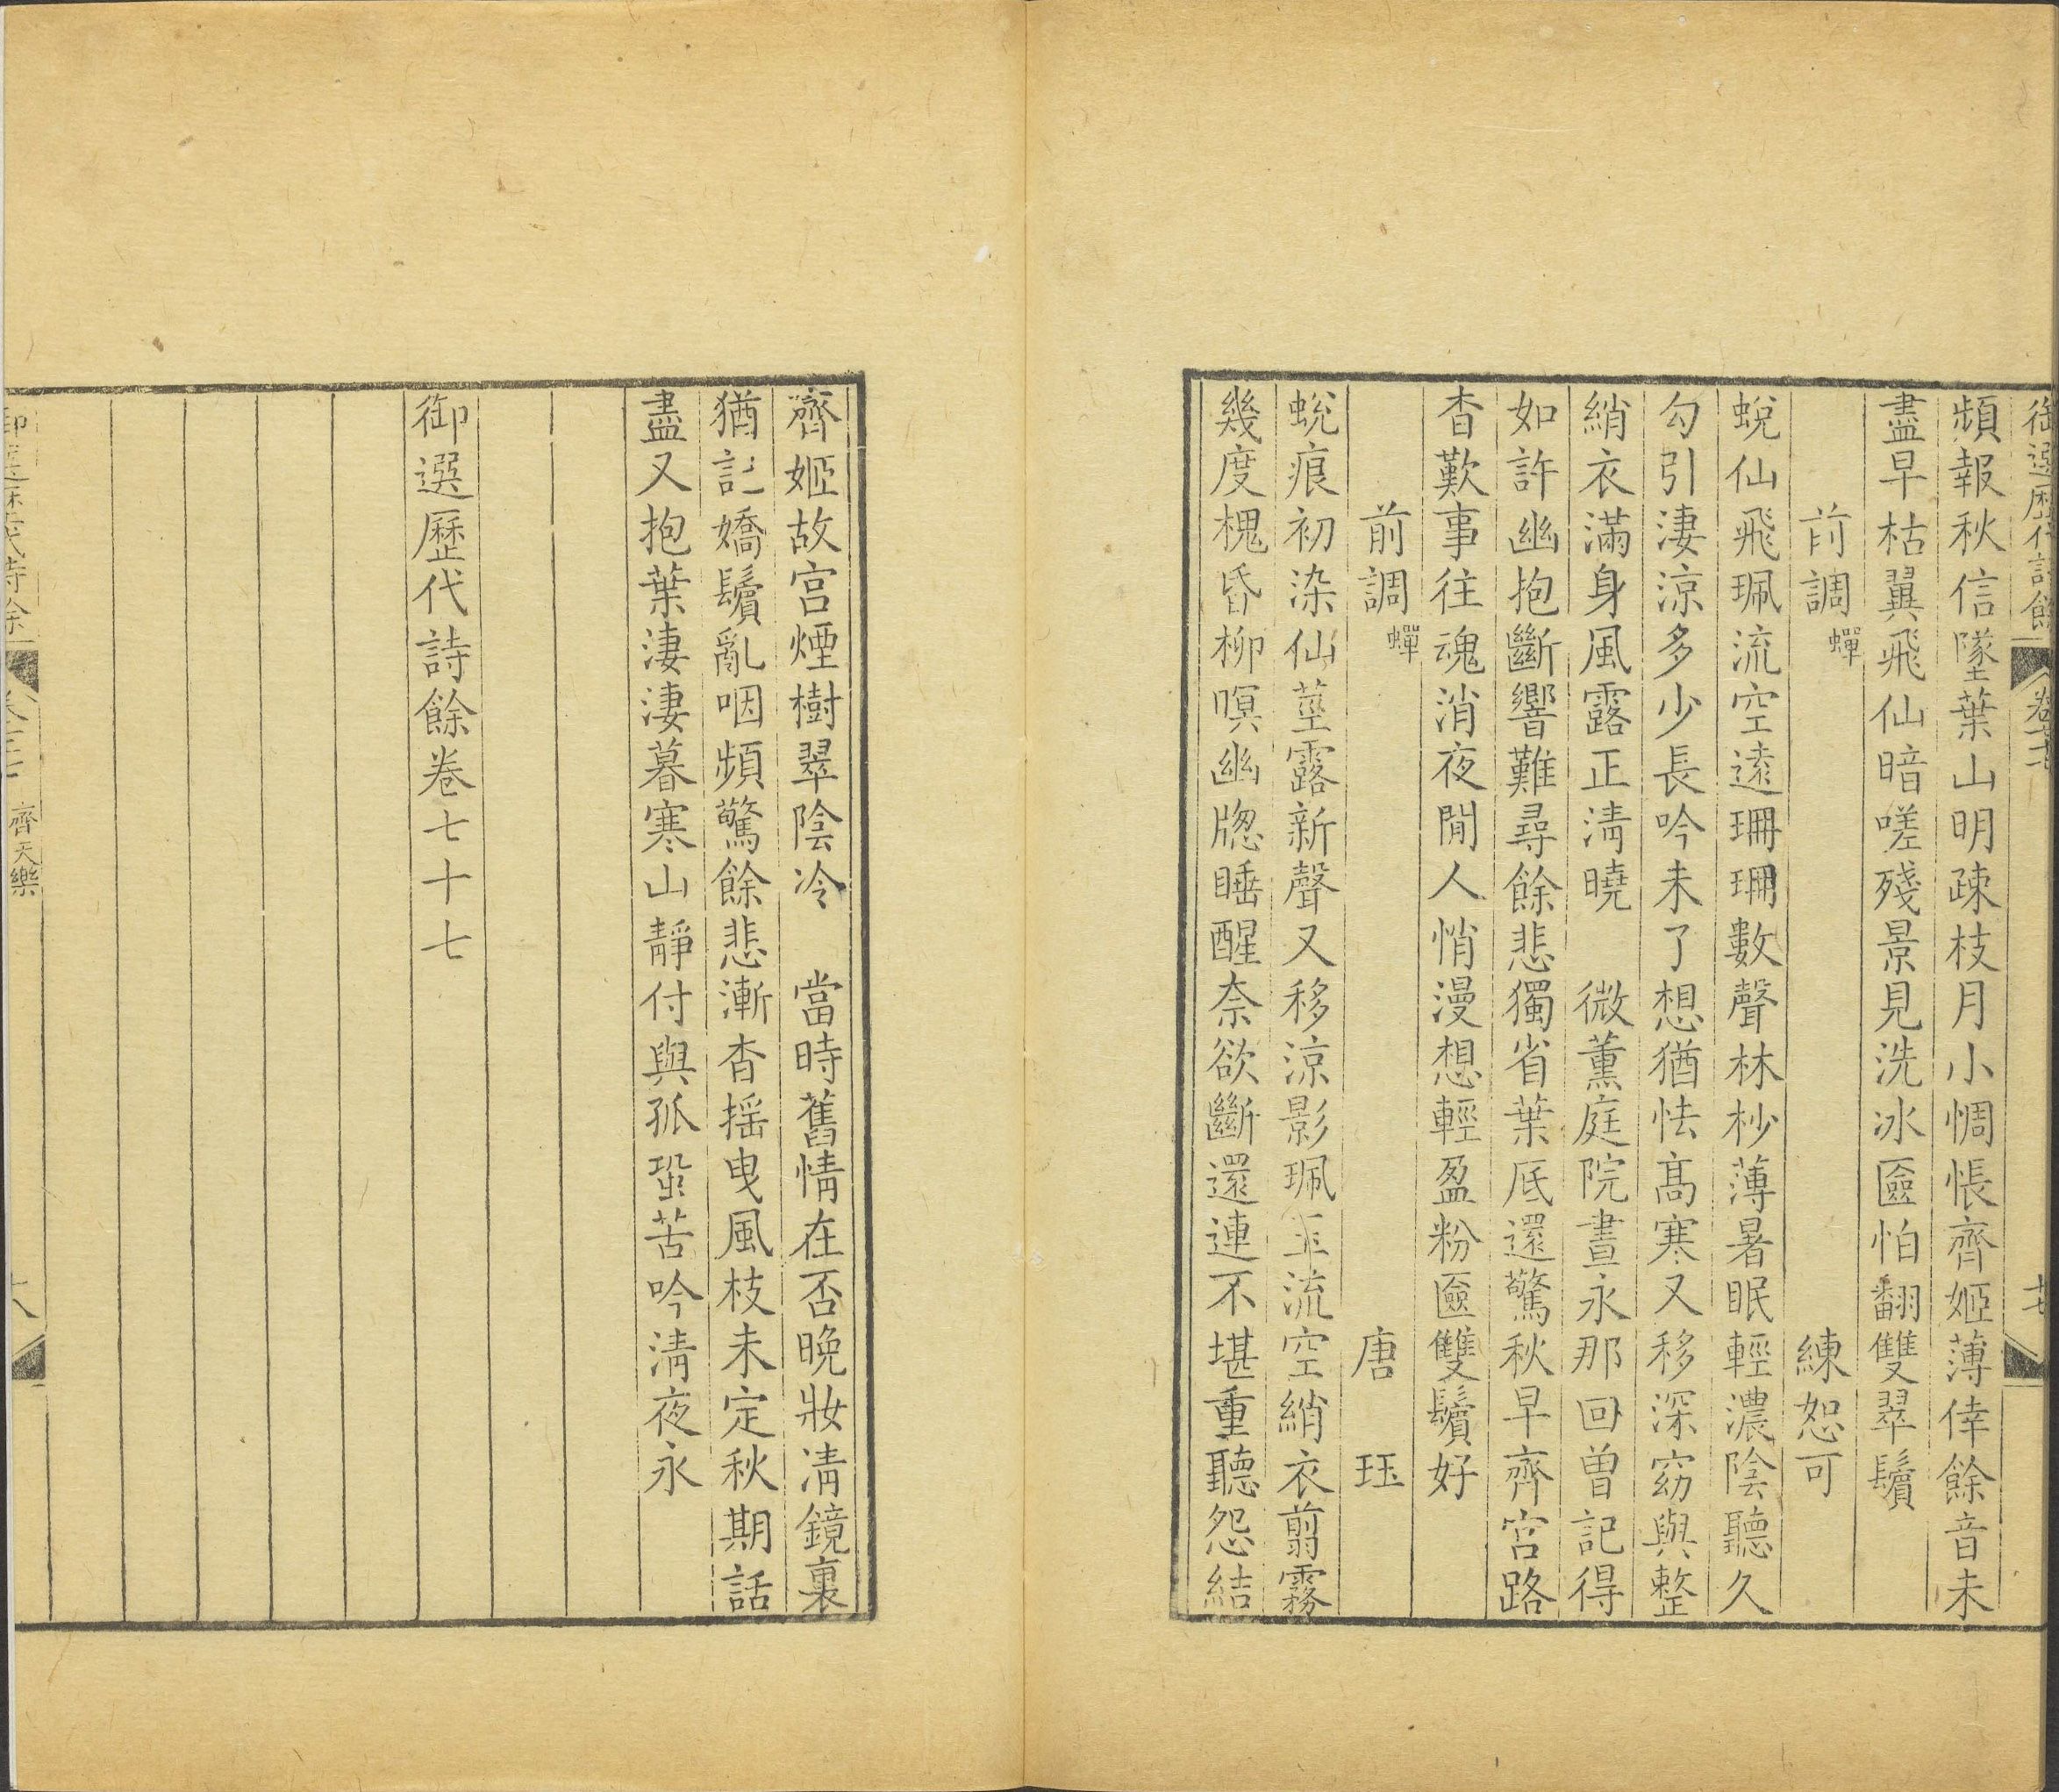 御選歷代詩餘
卷七十七
頻報秋信墜葉山明疎枝月小惆悵齊姬薄倖餘音未
盡早枯翼飛仙暗嗟殘景見洗冰匳怕翻雙翠鬢
前調 蟬 練恕可
蛻仙飛珮流空遠珊珊數聲林杪薄暑眠輕濃陰聽久
勾引淒涼多少長吟未了想猶怯髙寒又移深窈與整
綃衣滿身風露正清曉 微薰庭院晝永那回曾記得
如許幽抱斷響難尋餘悲獨省葉底還驚秋早齊宮路
杳歎事往魂消夜閒人悄漫想輕盈粉匳雙鬢好
前調 蟬 唐 珏
蛻痕初染仙莖露新聲又移涼影珮玉流空綃衣翦霧
幾度槐昏柳暝幽牕睡醒奈欲斷還連不堪重聽怨結
齊姬故宮煙樹翠陰冷 當時舊情在否晚妝清鏡裏
猶記嬌鬢亂咽頻驚餘悲漸杳搖曳風枝未定秋期話
盡又抱葉淒淒暮寒山靜付與孤蛩苦吟清夜永
御選歷代詩餘卷七十七
齊天樂